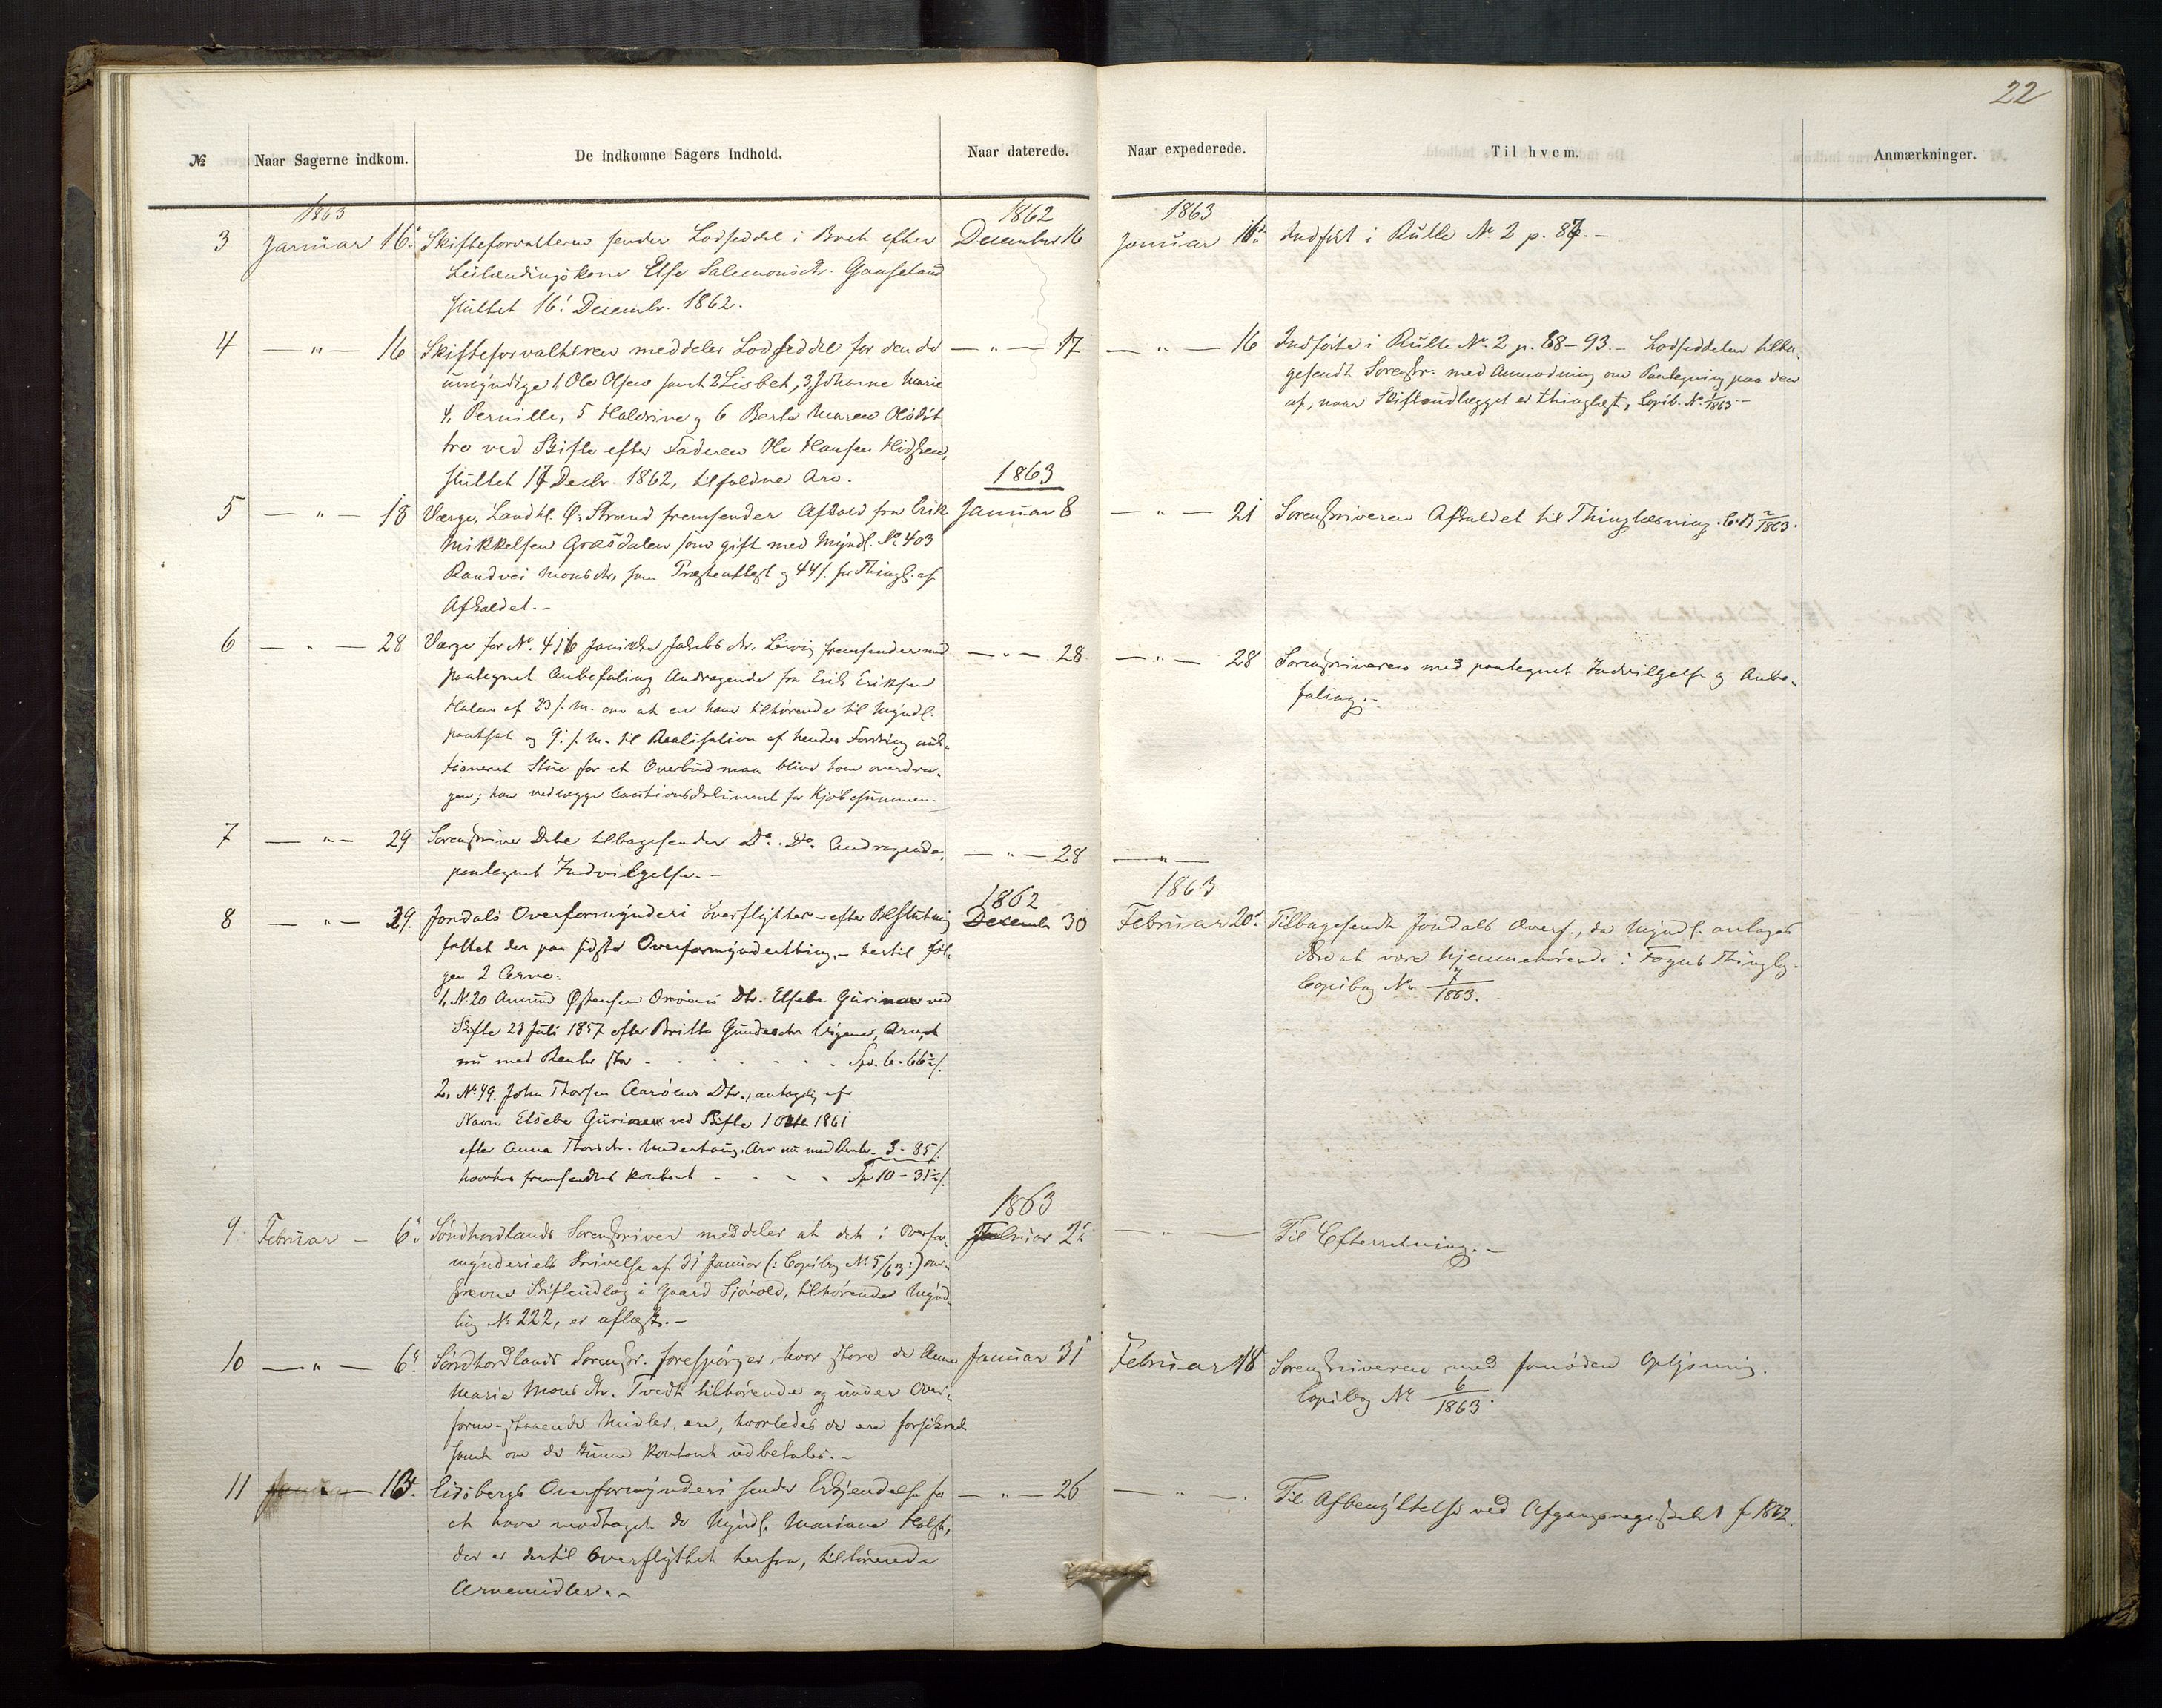 22
№ Naar Sagerne indkom. De indkomne Sagers Indhold. Naar daterede. Naar expederede. Til hvem. Anmærkninger.
1863 1862 1863
3 Januar 16. Skifteforvalteren sender Lodseddel i Boet efter December 16 Januar 16. Indført i Rulle No 2 p. 87.-
Elsa Salemonsdtr.
sluttet 16. Decembr. 1862.
4 — " — 16 Skifteforvalteren meddeler Lodseddel for den de — " — 17 — " — 16 Indførte i Rulle No. 2 p. 88-93.- Lodseddelen tilba-
umyndige 1, Ole Olsen samt 2 Lisbet, 3, Johanne Marie gesendt Sorenskr. med Anmodning om Paategning paa den
4, Pernille, 5 Haldrine og 6 Berta Maren Olsdøt af, naar Skifteudlægget er thinglæst, Copib. No. 1/1863.-
tre ved Skifte efter Faderen Ole Hansen
sluttet 17 Decbr. 1862, tilfaldne Arv.
1863
5 — " — 18 Værge, Landhl. Ø. Strand fremsender Afkald fra Erik Januar 8 — " — 21 Sorenskriveren Afkaldet til Thinglæsning. C. B 2/1863.
Mikkelsen Græsdalen som gift med Myndl. No 403
Randvei Monsdtr, samt Præsteattest og 44 s. for Thingl. af
Afkaldet.-
6 — " — 28 Værge for No. 416 Jakobsdtr. Leirvig fremsender med — " — 28 — " — 28 Sorenskriveren med paategnet Indvilgelse og Anbe-
paategnet Anbefaling Andragende fra Erik Eriksen faling.-
af 23 s. M. om at en ham tilhørende til Myndl.
pantsat og 9. s. M. til Realisation af hendes Fordring auk-
tioneret Stue for et Overbud maa blive ham overdra-
gen; han vedlægger Cautionsdokument for Kjøbesummen.-
7 — " — 29 Sorenskriver Dahl tilbagesender Do. Do. Andragende, — " — 28 — " —
paategnet Indvilgelse.-
1862 1863
8 — " — 29. Jondals Overformynderi overflytter - efter Beslutning Decembr 30 Februar 20. Tilbagesendt Jondals Overf., da Myndl. antages
fattet der paa sidste Overformynderthing,- hertil føl- ikke at være hjemmehørende i Thinglag.
gen 2 Arve: Copibog No. 7/1863.
1, No 20 Amund Østensen Dtr. Elsebe Gurine ved
Skifte 23 Juli 1857 efter Britta Gundersdtr. Arv,
nu med Renter stor - - - - - Spd. 6. 66½ s.
2, No 49. John Thorsen Dtr., antagelig af
Navn Elsebe Gurine ved Skifte 1 Octbr 1861
efter Anna Thorsdtr. Underhaug. Arv nu med Renter - 3 - 85 s.
hvorhos fremsendtes kontant - - - - Sp 10 - 31½ s.
1863
9 Februar — 6. Søndhordlands Sorenskriver meddeler at det i Overfor- Februar 2. — " — Til Efterretning.-
mynderiets Skrivelse af 31 Januar (: Copibog No. 5/63:) om-
skrevne Skifteudlæg i Gaard Sjøvold, tilhørende Mynd-
ling No 222, er aflæst.-
10 — " — 6. Søndhordlands Sorenskr. forespørger, hvor store de Anna Januar 31 Februar 18 Sorenskriveren med fornøden Oplysning.
Maria Monsdtr. Tvedt tilhørende og under Over- Copibog No 6/1863.
form. staaende Midler ere, hvorledes de ere forsikrede
samt om de kunne kontant udbetales.-
11 — 13. Eidsbergs Overformynderi sender Erkjendelse for — " — 26 — " — Til Afbenyttelse ved Afgangsregistret f 1862.
at have modtaget de Myndl. Mariane Holst,
der er dertil Overflyttet herfra, tilhørende
Arvemidler.-